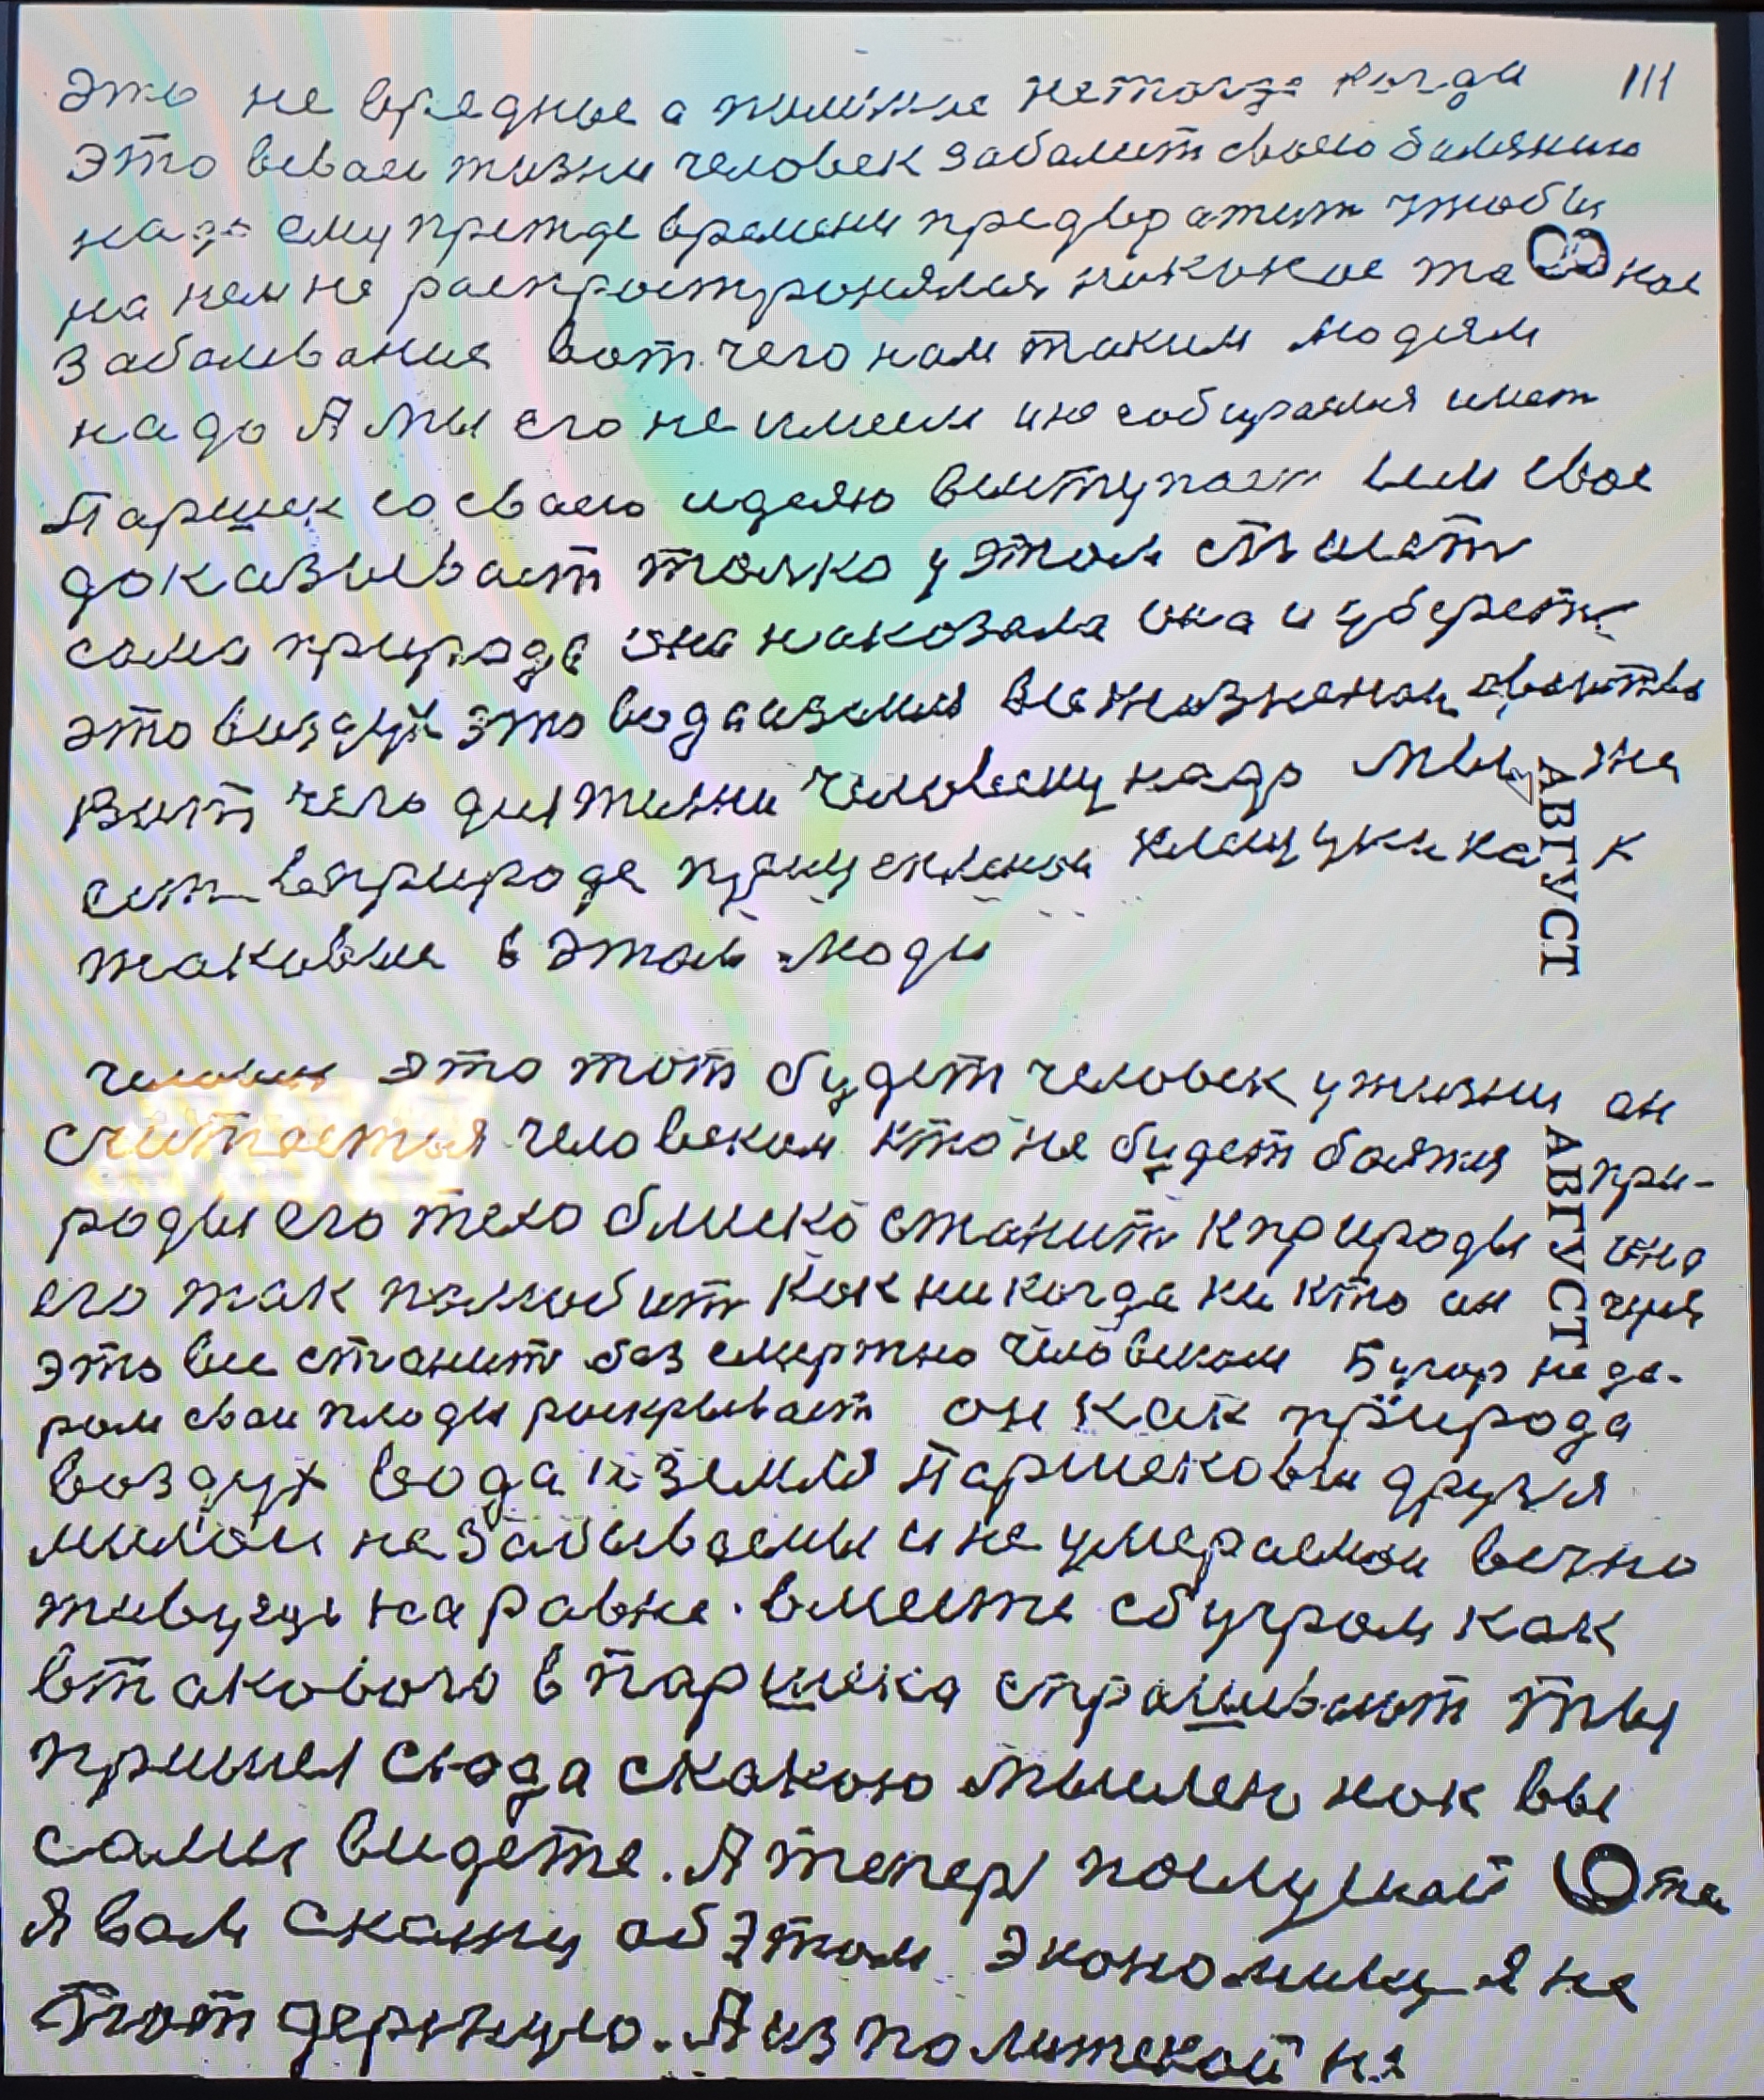 111
это не вредные а лишние нетогда когда
это веваей жизни человек забалит своею балезнию
надо ему прежде времени предвратит чтобы
на нем не распространялися никакое та 8 кое
забалевание вот чего нам таким людям
надо А мы его не имеем ине собираимся имет
Паршек со сваею идеяю выступает им свое
доказывает толко у этом стаит
сама природа она наказала она и уберет
это виздух это вода иземля
Вит чего для жизни человеку надо мы на
сит вприроде как
таковые в этом люди
АВГУСТ
человек это тот будет человек ужизни он
считается человеком кто не будет боятся при-
роды его тело блиско станит кприроды она
его так полюбит как никогда никто он через
это все станит без смертно человеком Бугор неда-
ром сваи плоды раскрывает он как природа
воздух вода и земля Паршековы друзя
милои незабываемы и не умераемои вечно
живущи на равне. вместе сбугром как
втаковога в паршека спрашивают ты
пришел сюда скакою мыслею как вы
сами видете. А тепер послушай 9 те
Я вам скажу об этом экономику я не
тот держую. А из политекой не
АВГУСТ